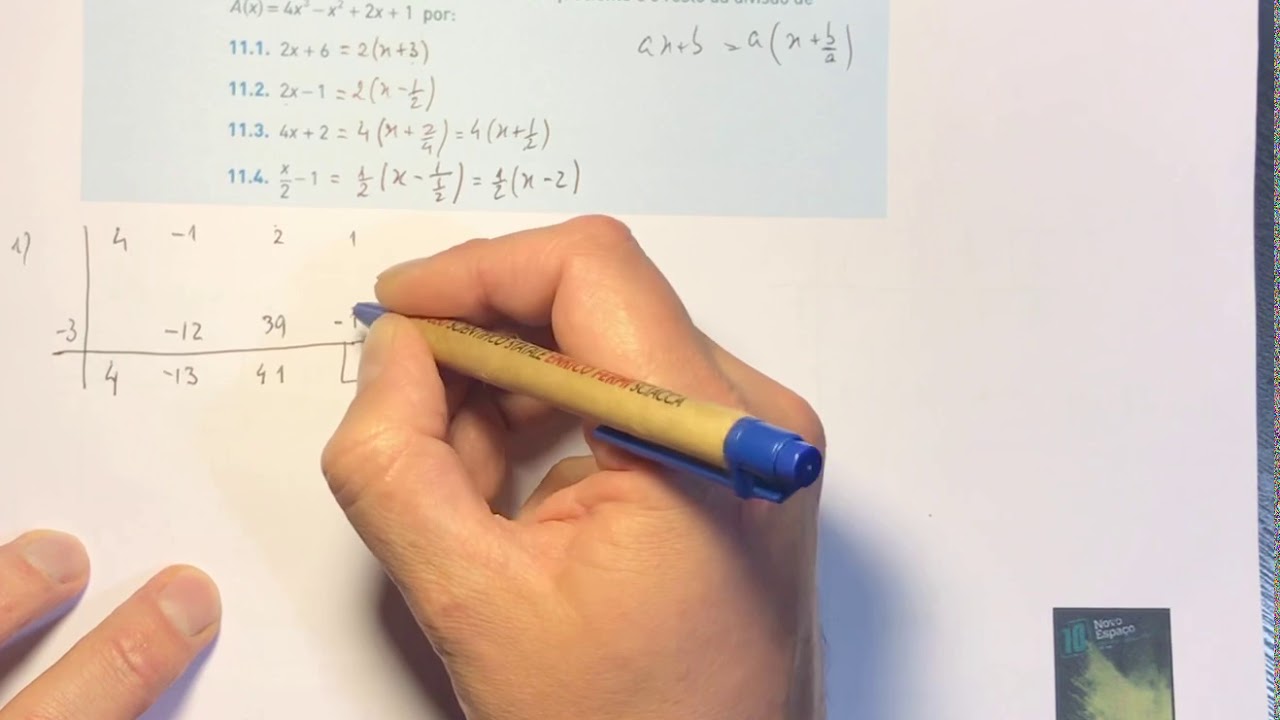 A(x) = 4x³ − x² + 2x + 1 por:
ax+b = a(x + b/a)
11.1. 2x + 6 = 2(x+3)
11.2. 2x − 1 = 2(x − 1/2)
11.3. 4x + 2 = 4(x + 2/4) = 4(x + 1/2)
11.4. x/2 − 1 = 1/2(x − 1/(1/2)) = 1/2(x − 2)
1) 4 -1 2 1
-3 -12 39 -1
4 -13 41
SCIENTIFICO STATALE ENRICO FERMI SCIACCA
10 Novo
Espaço